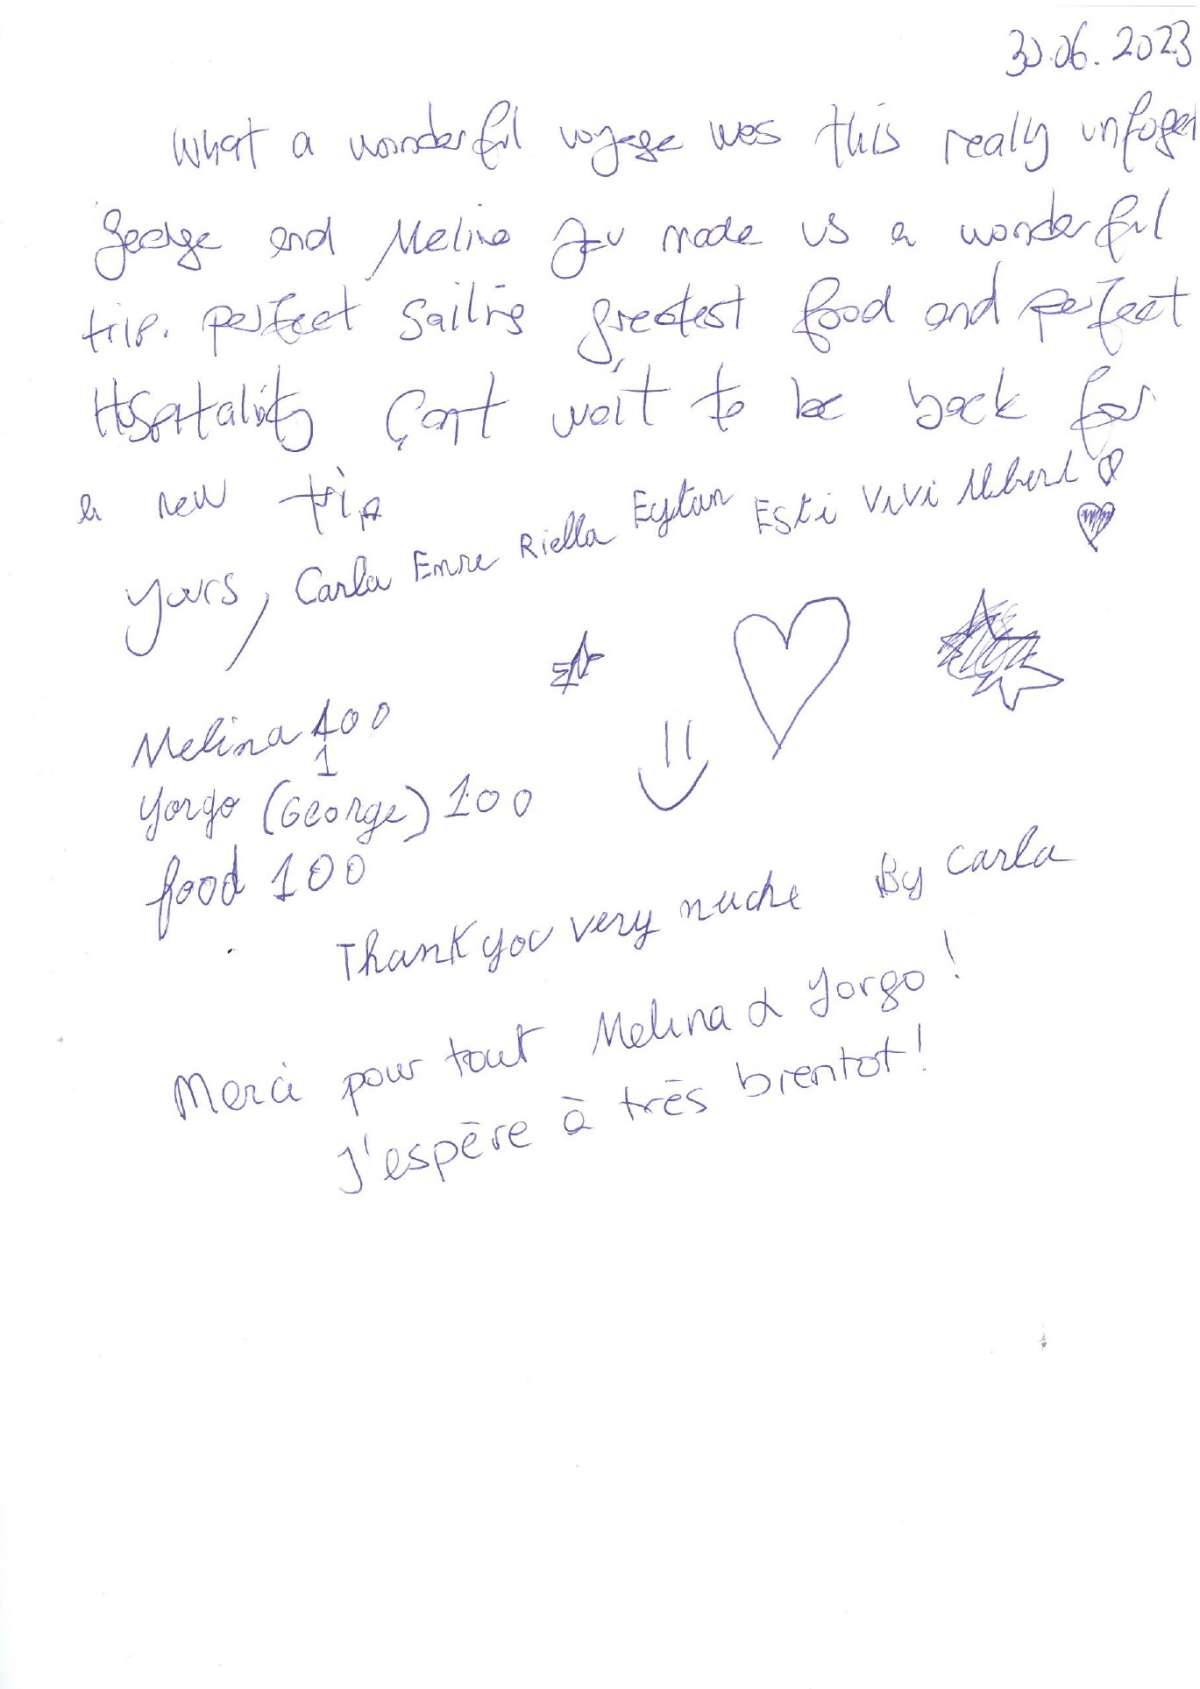 30.06.2023
What a wonderful voyage was this really unfoget
George and Melina you made us a wonderful
trip. perfect sailing greatest food and perfect
Hospitality Can't wait to be back for
a new trip
yours, Carla Emre Riella Eytan Esti ViVi Albert
Melina 100
1
Yorgo (George) 100
food 100
Thank you very muche By Carla
Merci pour tout Melina & Yorgo!
J'espère à très bientot!